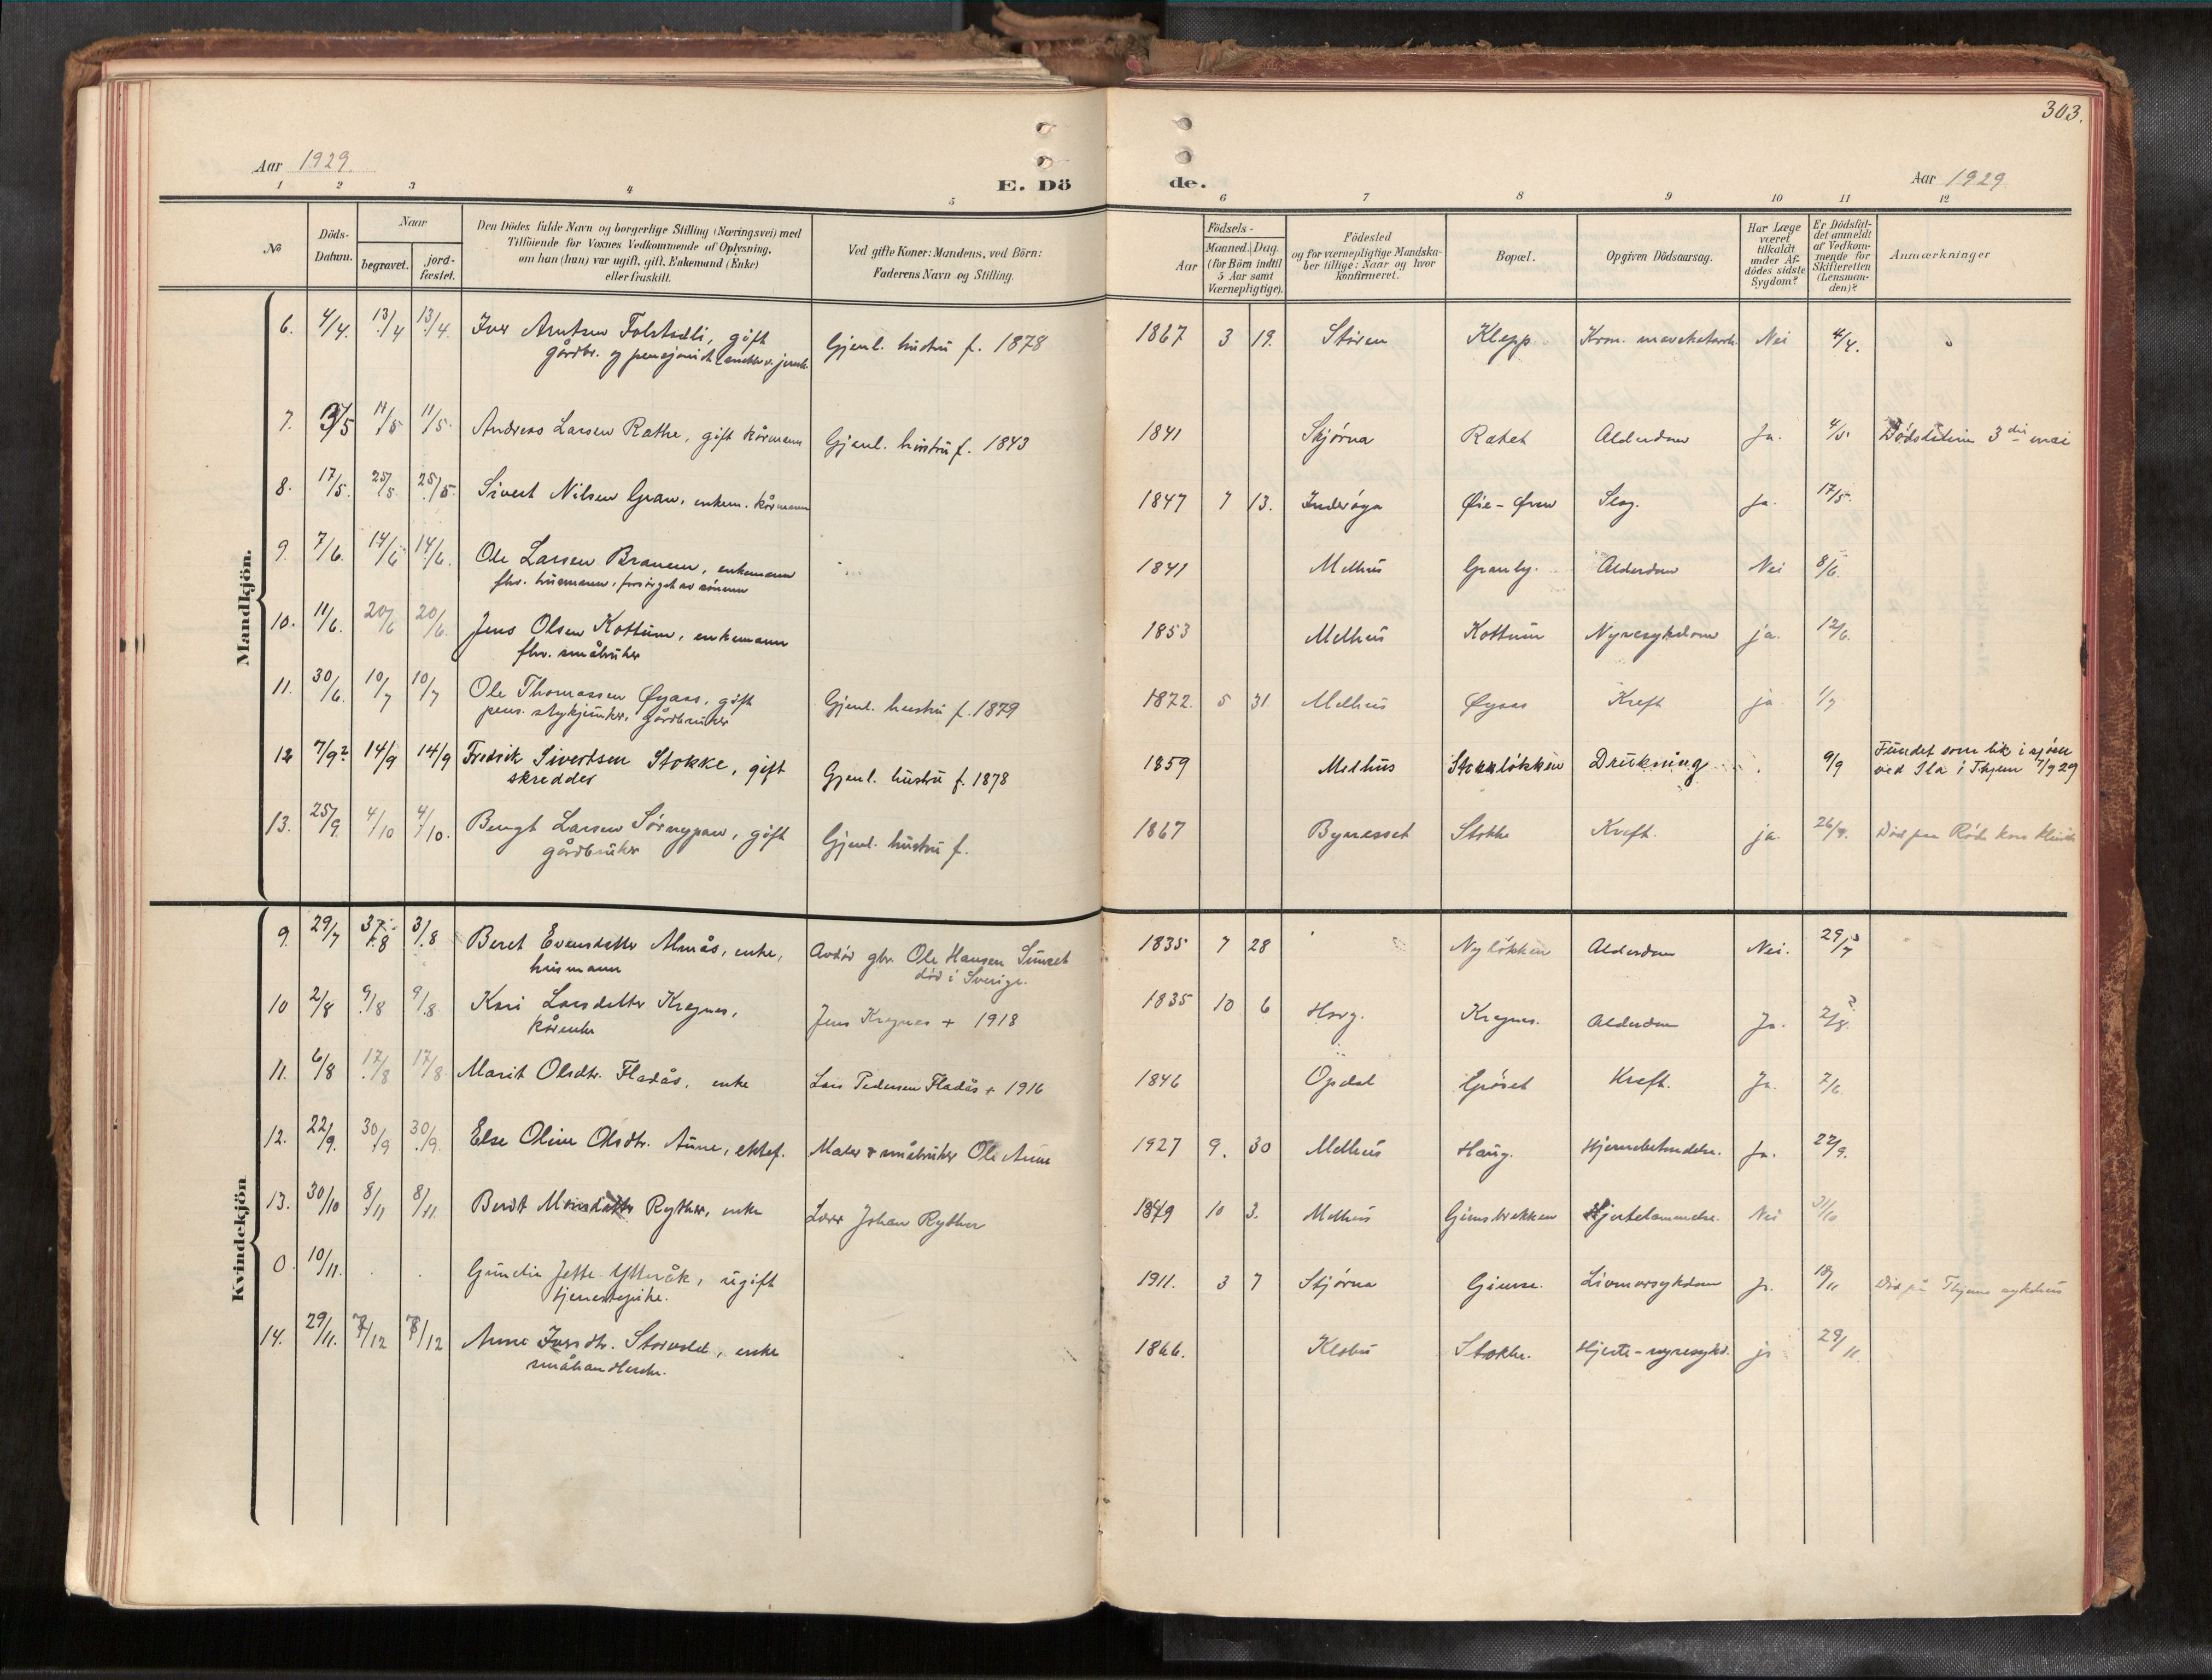 303.
Aar 1929.
E. Dö
de.
Aar 1929
1 2 3 4 5 6 7 8 9 10 11 12
No
Döds-
Datum.
Naar
begravet.
jord-
fæstet.
Den Dödes fulde Navn og borgerlige Stilling (Næringsvei) med
Tilföiende for Voxnes Vedkommende af Oplysning,
om han (hun) var ugift, gift, Enkemand (Enke)
eller fraskilt.
Ved gifte Koner: Mandens, ved Börn:
Faderens Navn og Stilling.
Födsels-
Aar
Maaned. Dag.
(for Börn indtil
5 Aar samt
Værnepligtige).
Födested
og for værnepligtige Mandska-
ber tillige: Naar og hvor
konfirmeret.
Bopæl.
Opgiven Dödsaarsag.
Har Læge
været
tilkaldt
under Af-
dödes sidste
Sygdom?
Er Dödsfal-
det anmeldt
af Vedkom-
mende for
Skifteretten
(Lensman-
den)?
Anmærkninger
Mandkjön.
6. 4/4. 13/4 13/4. Iver Arntsen Folstadli, gift Gjenl. hustru f. 1878 1867 3 19. Stören Klepp Kron. mavekatarrh. Nei 4/4.
gårdbr. og pensjonist
7. 3/5 11/5 11/5. Andreas Larsen Rathe, gift kårmann Gjenl. hustru f. 1843 1841 Stjørna Ratet Alderdom Ja. 4/5. Dødsdatum 3die mai
8. 17/5. 25/5 25/5. Sivert Nilsen Gran, enkem. kårmann 1847 7 13. Inderøya Øie-Øren Slag. Ja. 17/5.
9. 7/6. 14/6 14/6. Ole Larsen Brauen, enkemann 1841 Melhus Granby. Alderdom Nei 8/6.
fhv. husmann, forsörget av sönnen
10. 11/6. 20/6 20/6. Jens Olsen Kottum, enkemann 1853 Melhus Kottum Nyresykdom ja. 12/6.
fhv. småbruker
11. 30/6. 10/7 10/7 Ole Thomassen Øyaas, gift Gjenl. hustru f. 1879 1872. 5 31. Melhus Øyaas Kreft ja 1/7
pens. stykjunker, gårdbruker
12 7/9? 14/9 14/9 Fredrik Sivertsen Stokke, gift Gjenl. hustru f. 1878 1859 Melhus Stokkløkken Drukning 9/9 Fundet som lik i sjøen
skredder ved Ila i Thjem 7/9 29
13. 25/9. 4/10 4/10. Bengt Larsen Sörnypan, gift Gjenl. hustru f. 1867 Bynesset Stokke Kreft. ja. 26/9. Död paa Röde kors klinik
gårdbruker
Kvindekjön
9. 29/7 3/8 3/8 Beret Evensdatter Almås, enke, Avdöd gbr. Ole Hansen 1835 7 28 Nyløkken Alderdom Nei. 29/7
husmann död i Sverige.
10 2/8 9/8 9/8 Kari Larsdatter Kregnes, Jens Kregnes + 1918 1835 10 6 Horg. Kregnes. Alderdom Ja. 2/8.
kårenke
11. 6/8 17/8 17/8 Marit Olsdtr. Fladås, enke Lars Pedersen Fladås + 1916 1846 Opdal Gröset Kreft. Ja. 7/8
12. 22/9. 30/9 30/9. Else Oline Olsdtr. Aune, ektef. Maler & småbruker Ole Aune 1927 9. 30 Melhus Haug. Hjernebetendelse. Ja. 22/9.
13. 30/10 8/11 8/11. Beret Monsdatter Ryther, enke Lærer Johan Ryther 1849 10 3. Melhus Gimsbrekken Hjertelammelse. Nei 31/10
0. 10/11. Gundin Jette Ytteråk, ugift 1911. 3 7 Stjørna Gimse. Livmorsykdom Ja. 18/11 Död på Thjems sykehus
tjenestepike.
14. 29/11. 7/12 7/12 Anne Iversdtr. Storvold, enke 1866. Klæbu Stokke. Hjerte-nyresykd. ja 29/11.
småhandlerske.